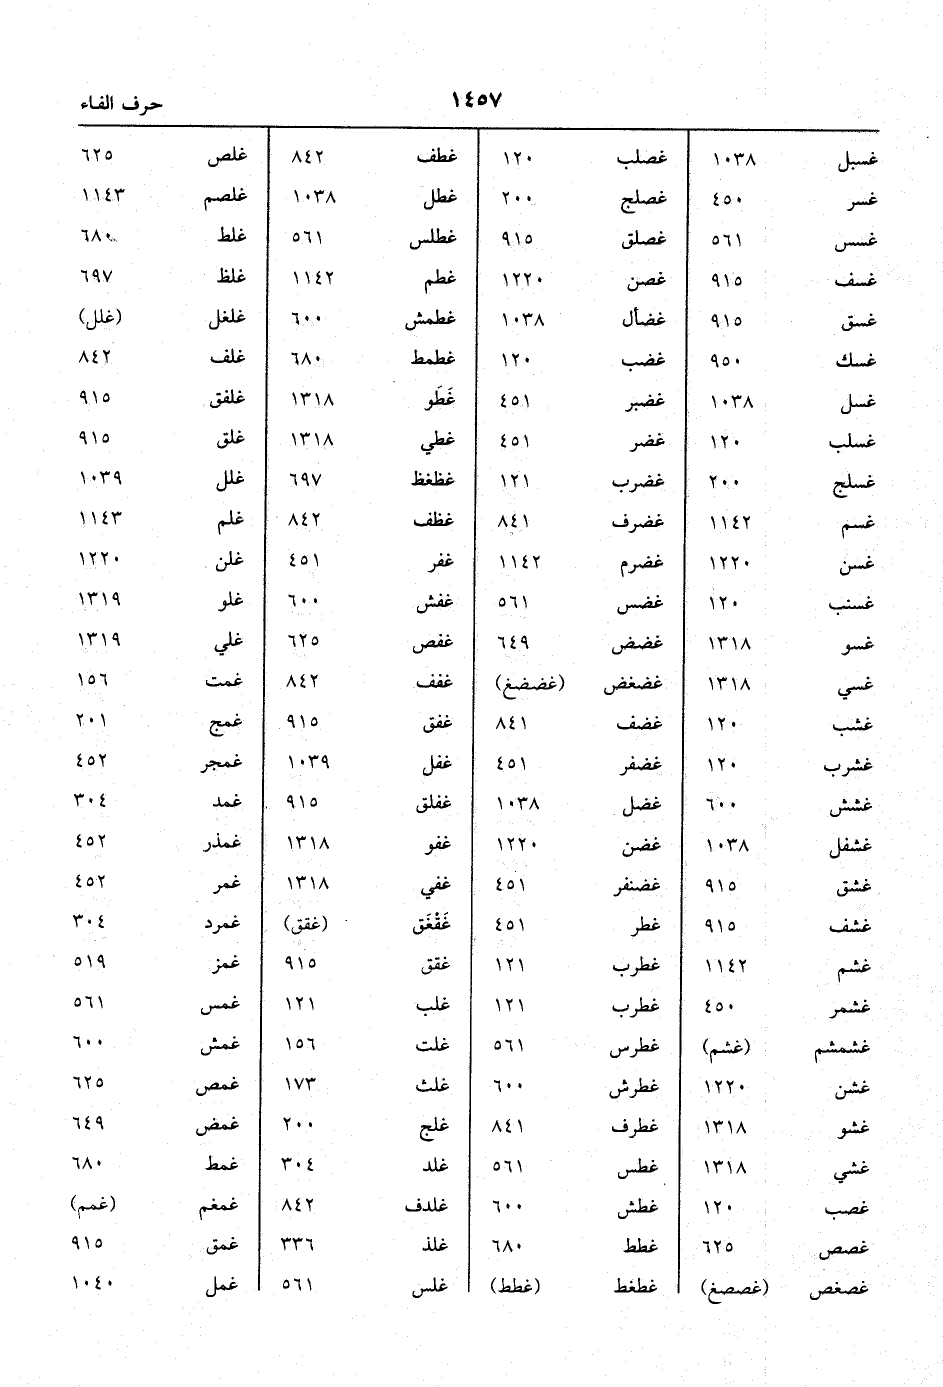 حرف الفاء ١٤٥٧
غسبل ١٠٣٨
غسر ٤٥٠
غسس ٥٦١
غسف ٩١٥
غسق ٩١٥
غسك ٩٥٠
غسل ١٠٣٨
غسلب ١٢٠
غسلج ٢٠٠
غسم ١١٤٢
غسن ١٢٢٠
غسنب ١٢٠
غسو ١٣١٨
غسي ١٣١٨
غشب ١٢٠
غشرب ١٢٠
غشش ٦٠٠
غشفل ١٠٣٨
غشق ٩١٥
غشف ٩١٥
غشم ١١٤٢
غشمر ٤٥٠
غشمشم (غشم)
غشن ١٢٢٠
غشو ١٣١٨
غشي ١٣١٨
غصب ١٢٠
غصص ٦٢٥
غصغص (غصصغ)
غصلب ١٢٠
غصلج ٢٠٠
غصلق ٩١٥
غصن ١٢٢٠
غضأل ١٠٣٨
غضب ١٢٠
غضبر ٤٥١
غضر ٤٥١
غضرب ١٢١
غضرف ٨٤١
غضرم ١١٤٢
غضس ٥٦١
غضض ٦٤٩
غضغض (غضضغ)
غضف ٨٤١
غضفر ٤٥١
غضل ١٠٣٨
غضن ١٢٢٠
غضنفر ٤٥١
غطر ٤٥١
غطرب ١٢١
غطرب ١٢١
غطرس ٥٦١
غطرش ٦٠٠
غطرف ٨٤١
غطس ٥٦١
غطش ٦٠٠
غطط ٦٨٠
غطغط (غطط)
غطف ٨٤٢
غطل ١٠٣٨
غطلس ٥٦١
غطم ١١٤٢
غطمش ٦٠٠
غطمط ٦٨٠
غَطَو ١٣١٨
غطي ١٣١٨
غظغظ ٦٩٧
غظف ٨٤٢
غفر ٤٥١
غفش ٦٠٠
غفص ٦٢٥
غفف ٨٤٢
غفق ٩١٥
غفل ١٠٣٩
غفلق ٩١٥
غفو ١٣١٨
غفي ١٣١٨
غَقْغَق (غقق)
غقق ٩١٥
غلب ١٢١
غلت ١٥٦
غلث ١٧٣
غلج ٢٠٠
غلد ٣٠٤
غلدف ٨٤٢
غلذ ٣٣٦
غلس ٥٦١
غلص ٦٢٥
غلصم ١١٤٣
غلط ٦٨٠
غلظ ٦٩٧
غلغل (غلل)
غلف ٨٤٢
غلفق ٩١٥
غلق ٩١٥
غلل ١٠٣٩
غلم ١١٤٣
غلن ١٢٢٠
غلو ١٣١٩
غلي ١٣١٩
غمت ١٥٦
غمج ٢٠١
غمجر ٤٥٢
غمد ٣٠٤
غمذر ٤٥٢
غمر ٤٥٢
غمرد ٣٠٤
غمز ٥١٩
غمس ٥٦١
غمش ٦٠٠
غمص ٦٢٥
غمض ٦٤٩
غمط ٦٨٠
غمغم (غمم)
غمق ٩١٥
غمل ١٠٤٠